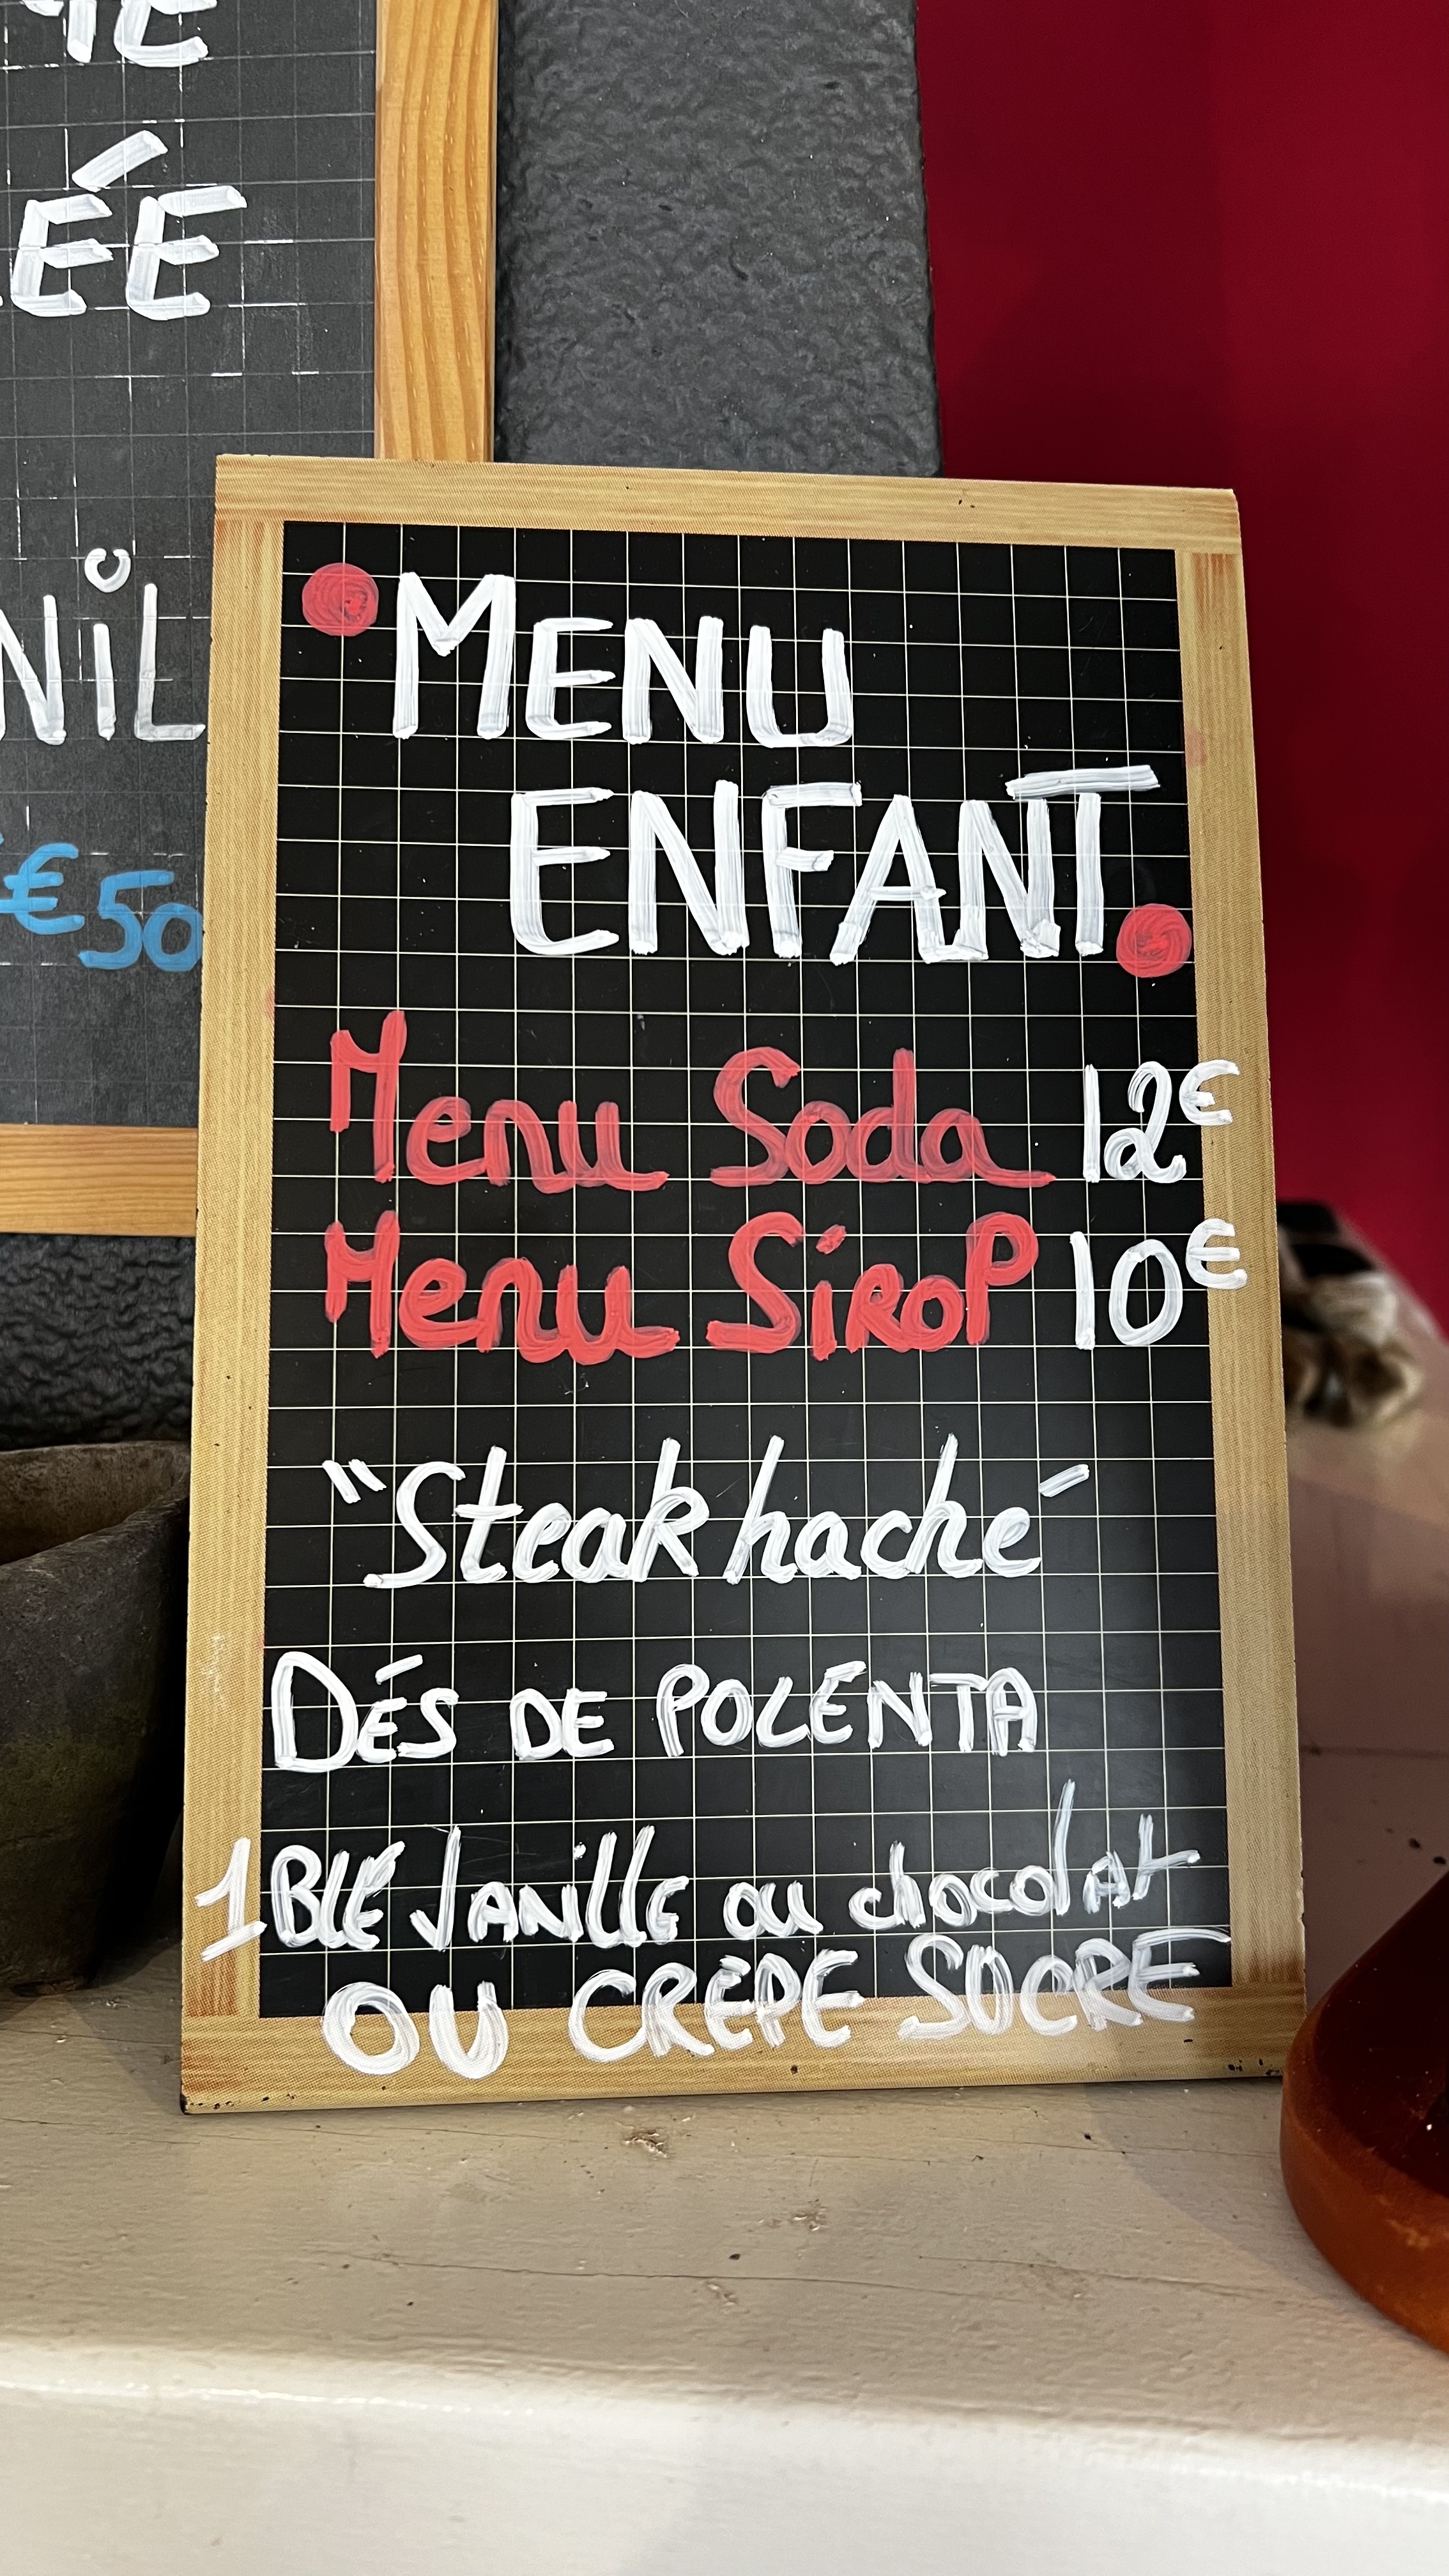 ÉE
NiL
€50
MENU
ENFANT
Menu Soda 12€
Menu SiroP 10€
"Steak haché"
DÉS DE POLENTA
1 BLE VANille ou chocolat
OU CREPE SUCRE